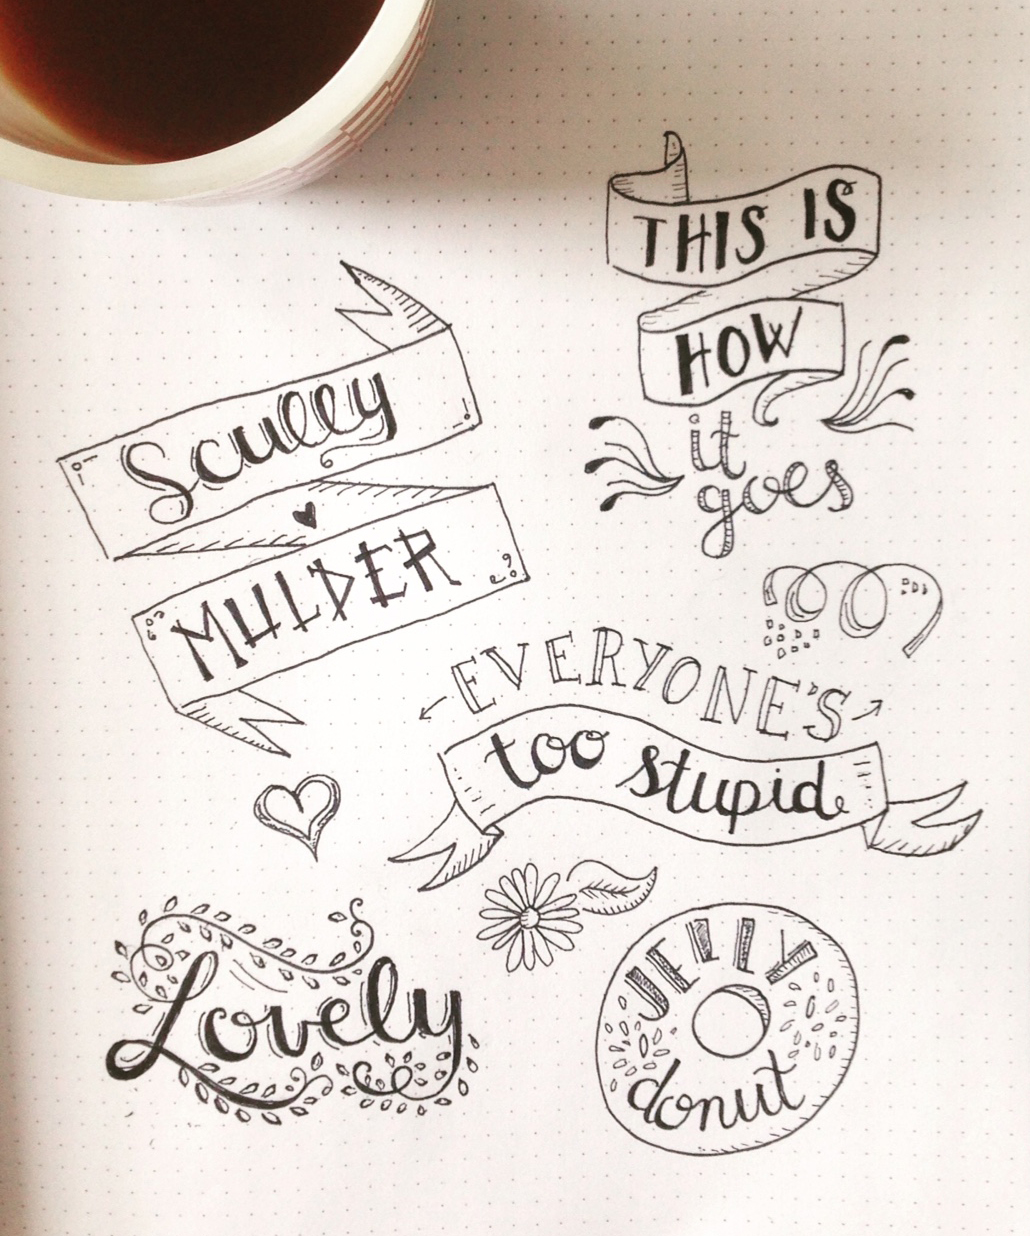 THIS IS
HOW
it
goes
Scully
MULDER
EVERYONE'S
too stupid
Lovely
JELLY
donut